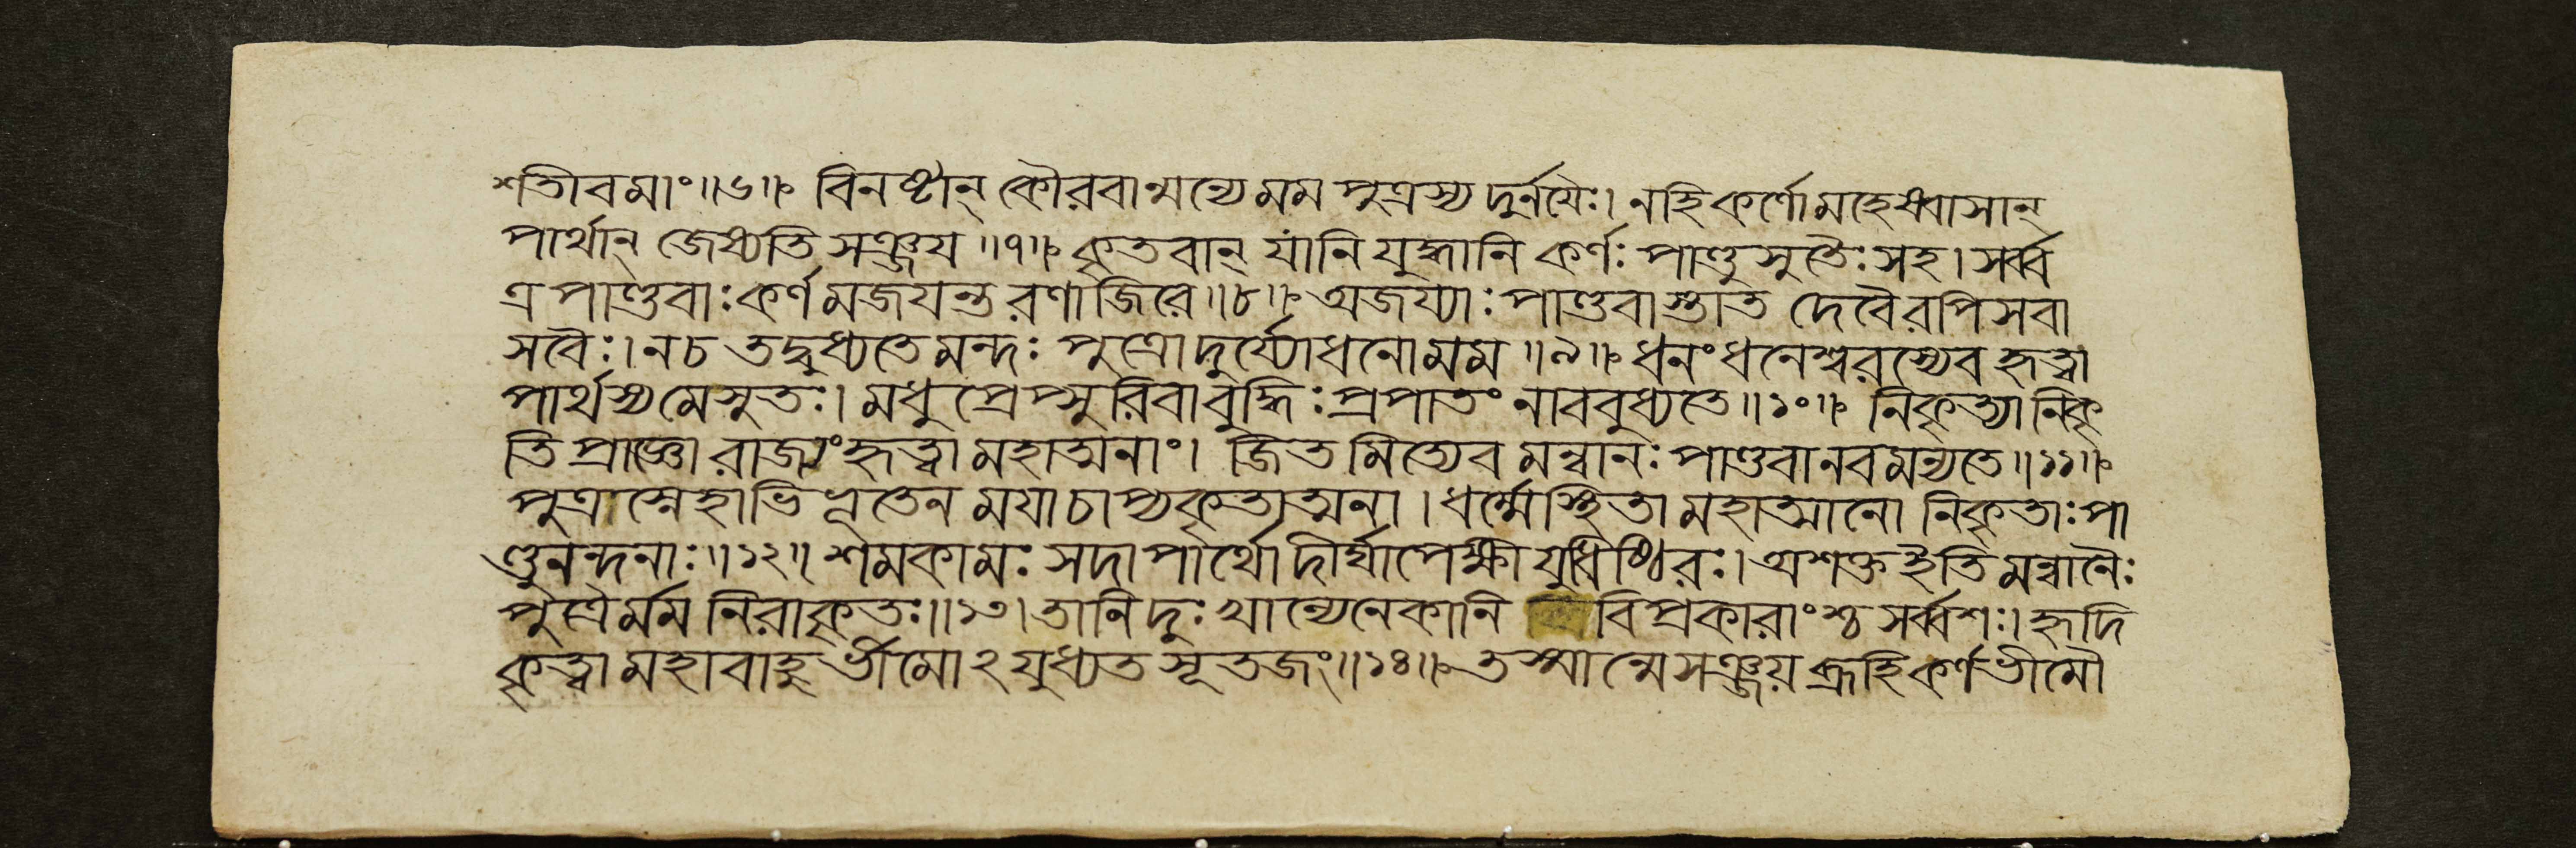 শতীব মাং॥৬॥ বিনষ্টান্ কৌরবান্মন্যে মম পুত্রস্য দুর্নয়ৈঃ। নহি কর্ণো মহেষ্বাসান্
পার্থান্ জেষ্যতি সঞ্জয॥৭॥ কৃতবান্ যানি যুদ্ধানি কর্ণঃ পাণ্ডুসুতৈঃ সহ। সর্ব্ব
ত্র পাণ্ডবাঃ কর্ণমজযন্ত রণাজিরে॥৮॥ অজয্যাঃ পাণ্ডবাস্তাত দেবৈরপি সবা
সবৈঃ। ন চ তদ্বুধ্যতে মন্দঃ পুত্রো দুর্য্যোধনো মম॥৯॥ ধনং ধনেশ্বরস্যেব হৃত্বা
পার্থস্য মে সুতঃ। মধুপ্রেপ্সুরিবাবুদ্ধিঃ প্রপাতং নাববুধ্যতে॥১০॥ নিকৃত্যা নিকৃ
তিপ্রাজ্ঞো রাজ্যং হৃত্বা মহাত্মনাং। জিতমিত্যেব মন্বানঃ পাণ্ডবানবমন্যতে॥১১॥
পুত্রাস্নেহাভিভূতেন মযা চাপ্যকৃতাত্মনা। ধর্ম্মে স্থিতা মহাত্মানো নিকৃতাঃ পা
ণ্ডুনন্দনাঃ॥১২॥ শমকামঃ সদা পার্থো দীর্ঘাপেক্ষী যুধিষ্ঠিরঃ। অশক্ত ইতি মন্বানৈঃ
পুত্রৈর্মম নিরাকৃতঃ॥১৩। তানি দুঃখান্যেনেকানি বিপ্রকারাংশ্চ সর্ব্বশঃ। হৃদি
কৃত্বা মহাবাহুর্ভীমোঽযুধ্যত সূতজং॥১৪॥ তস্মান্মে সঞ্জয় ব্রূহি কর্ণভীমৌ